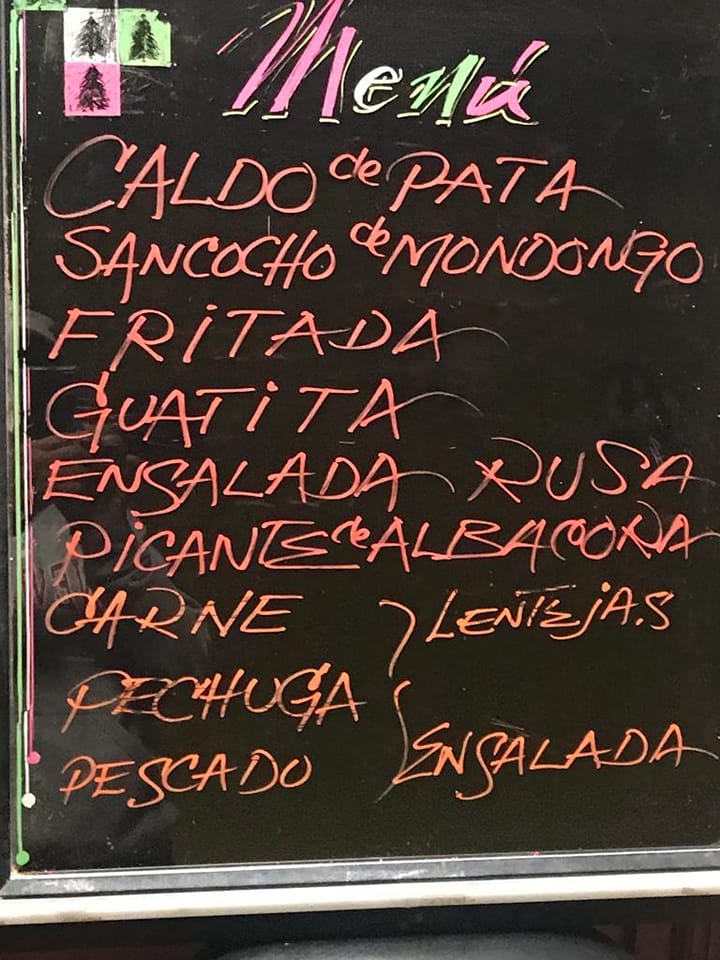 Menú
CALDO de PATA
SANCOCHO de MONDONGO
FRiTADA
GUATiTA
ENSALADA RUSA
PiCANTE de ALBACORA
CARNE } LENTEjAS
PECHUGA
PESCADO } ENSALADA